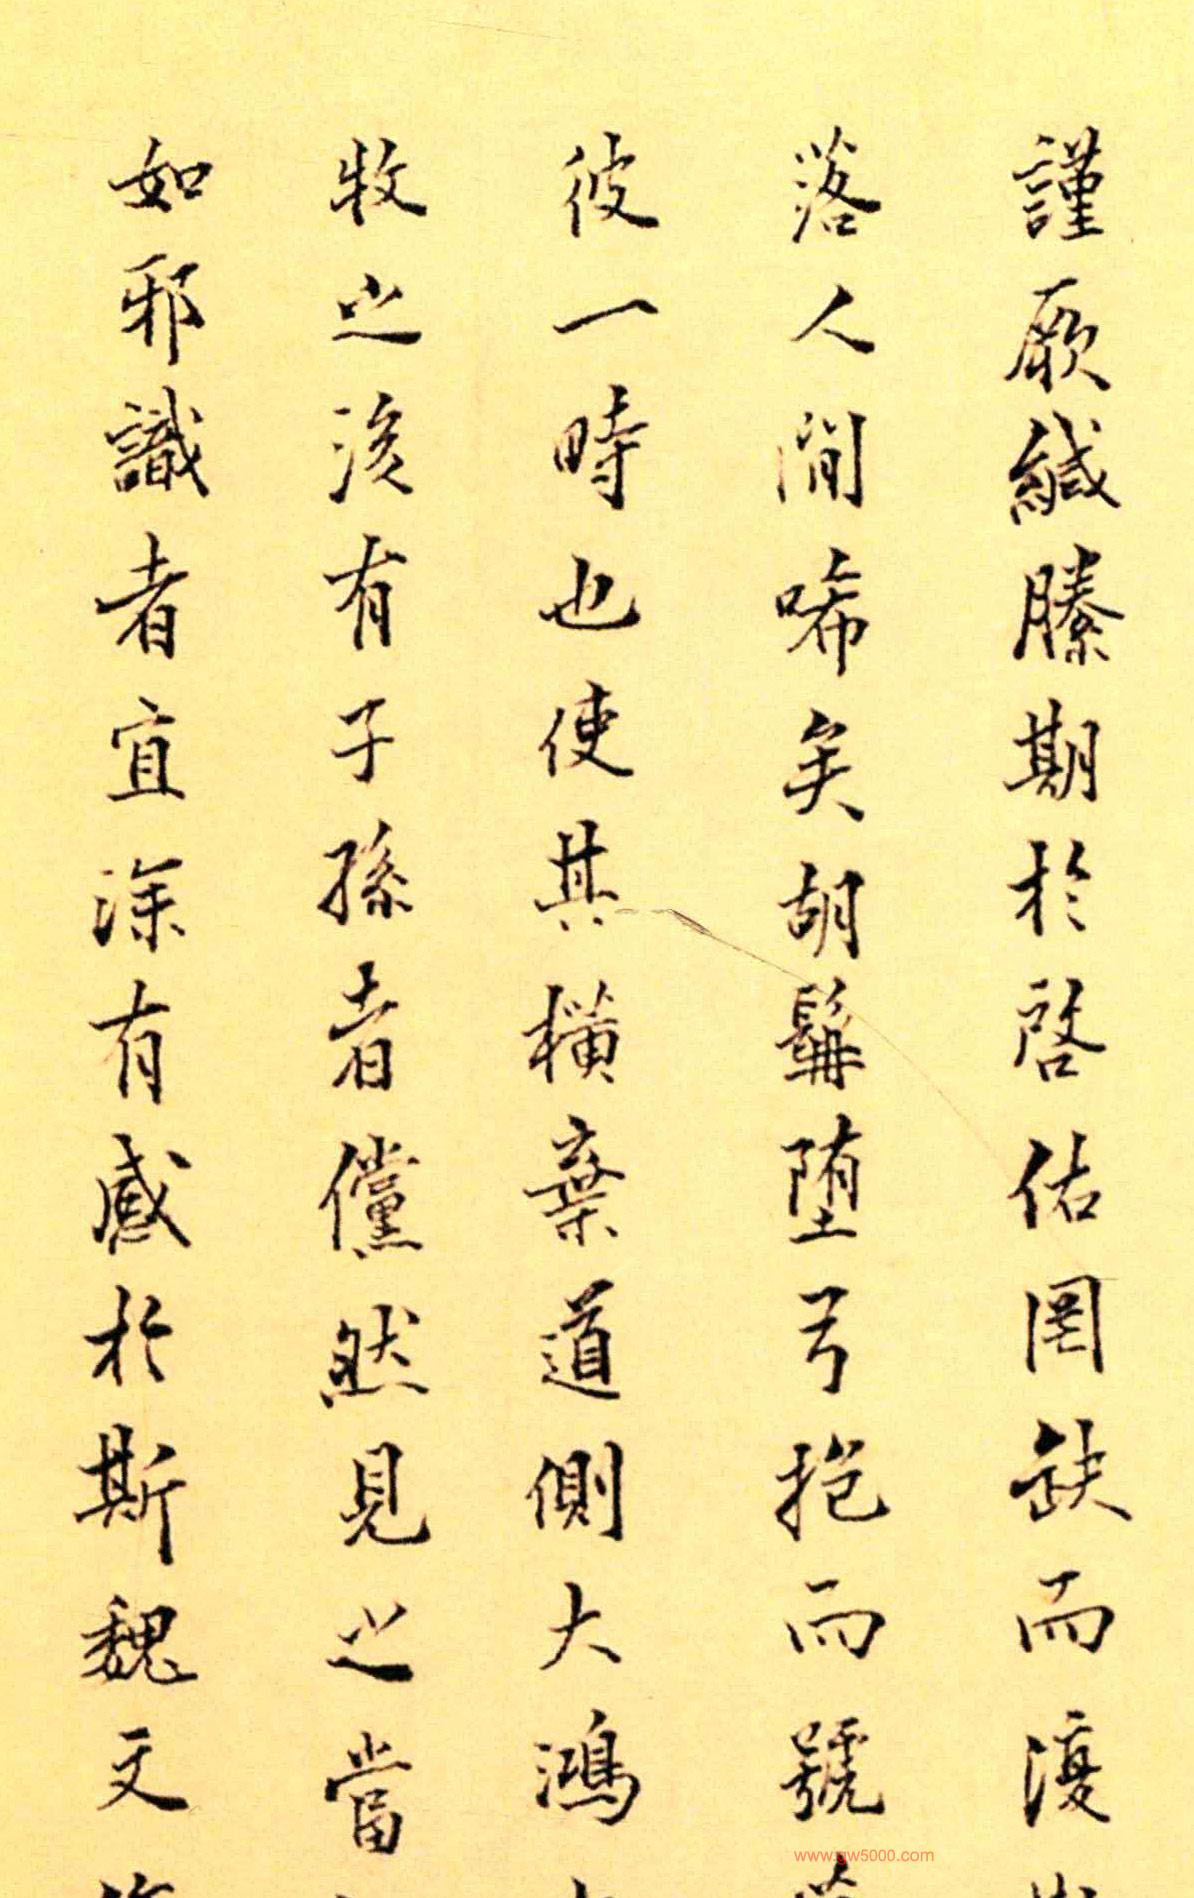 謹厥緘縢期於啓佑罔缺而復
落人間唏矣胡髯堕弓抱而號
彼一時也使其橫棄道側大鴻
牧之後有子孫者儻然見之當
如邪識者宜深有感於斯魏文
www.gw5000.com